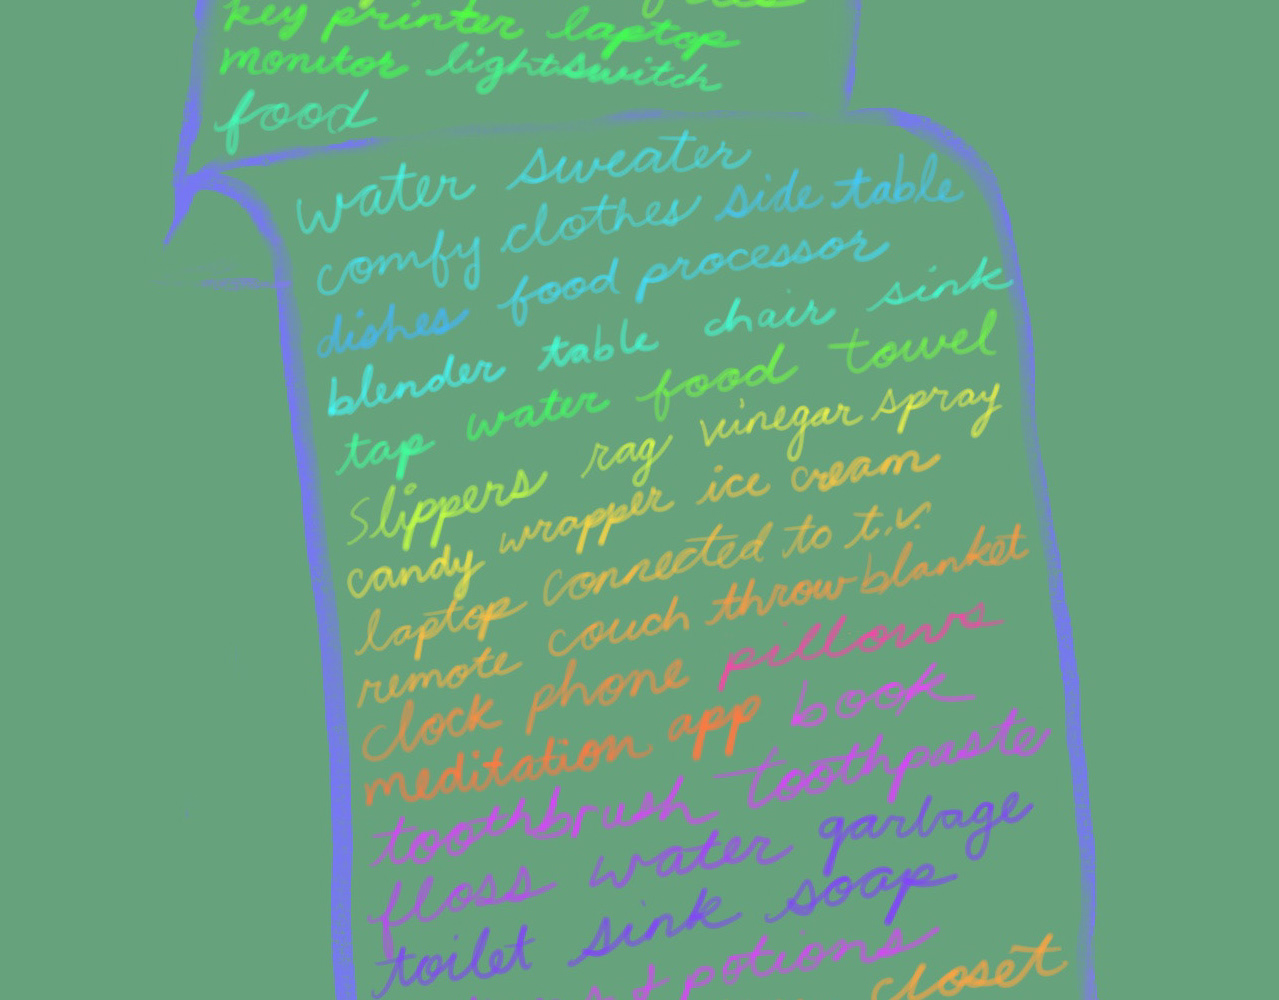 key printer laptop
monitor lightswitch
food
water sweater
comfy clothes side table
dishes food processor
blender table chair sink
tap water food towel
slippers rag vinegar spray
candy wrapper ice cream
laptop connected to t.v.
remote couch throw blanket
clock phone pillows
meditation app book
toothbrush toothpaste
floss water garbage
toilet sink soap
potions
closet